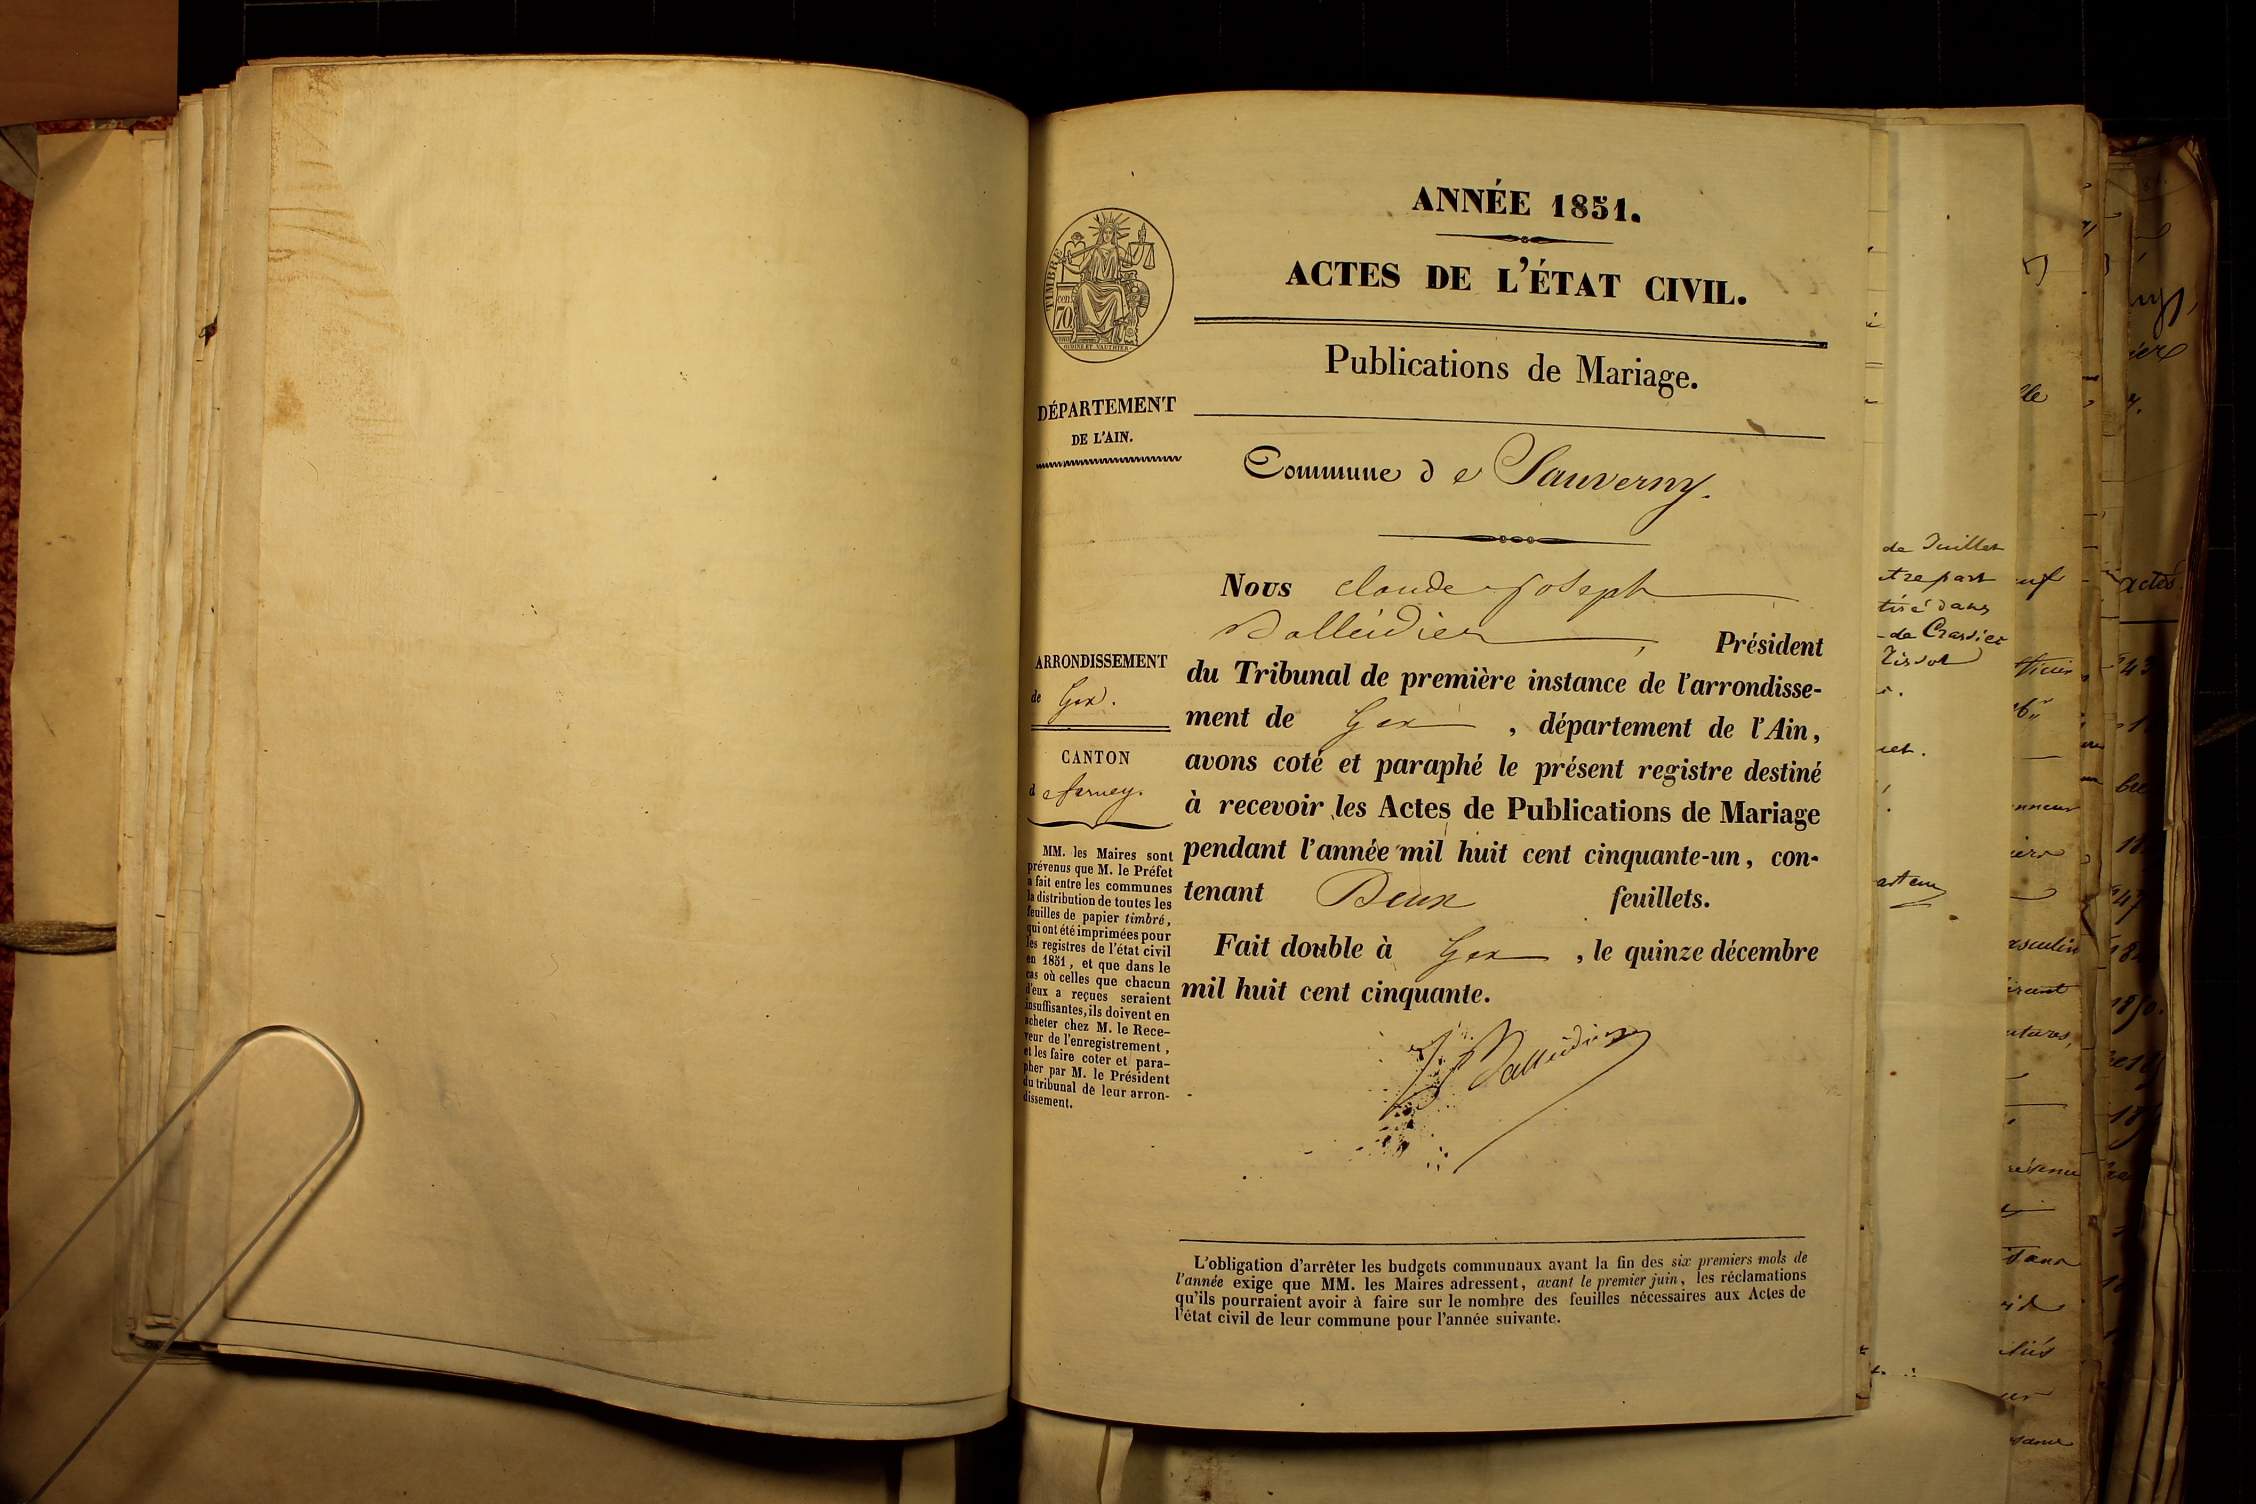 ANNÉE 1851.
ACTES DE L'ÉTAT CIVIL.
Publications de Mariage.
TIMBRE
cen.
70
DÉPARTEMENT
DE L'AIN.
Commune de Sauverny.
Nous Claude Joseph
Balleidier, Président
du Tribunal de première instance de l'arrondisse-
ment de Gex, département de l'Ain,
avons coté et paraphé le présent registre destiné
à recevoir les Actes de Publications de Mariage
pendant l'année mil huit cent cinquante-un, con-
tenant Deux feuillets.
Fait double à Gex, le quinze décembre
mil huit cent cinquante.
Balleidier
ARRONDISSEMENT
de Gex.
CANTON
de ferney.
MM. les Maires sont
prévenus que M. le Préfet
a fait entre les communes
la distribution de toutes les
feuilles de papier timbré,
qui ont été imprimées pour
les registres de l'état civil
en 1851, et que dans le
cas où celles que chacun
d'eux a reçues seraient
insuffisantes, ils doivent en
acheter chez M. le Rece-
veur de l'enregistrement,
et les faire coter et para-
pher par M. le Président
du tribunal de leur arron-
dissement.
L'obligation d'arrêter les budgets communaux avant la fin des six premiers mois de
l'année exige que MM. les Maires adressent, avant le premier juin, les réclamations
qu'ils pourraient avoir à faire sur le nombre des feuilles nécessaires aux Actes de
l'état civil de leur commune pour l'année suivante.
de Juillet
tré dans
de Crassier
Tissot
actes